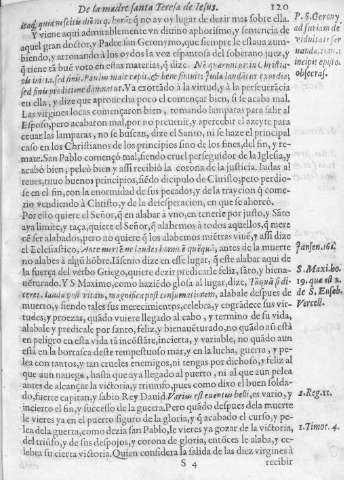 De la madre santa Teresa de Iesus. 120
aquel gran doctor, y Padre san Geronymo, que siempre le estaua zum-
biendo, y atronando à los oydos la voz espantosa del soberano juez, y
ella, y dize que aprouecha poco el començar bien, si se acaba mal.
Las virgines locas començaron bien, tomando lamparas para salir al
Esposo, pero acabaron mal, por no preuenir, y apercebir el azeyte para
ceuar las lamparas, no se buscan, dize el Santo, ni se haze el principal
caso en los Christianos de los principios sino de los fines, del fin, y re-
mate. San Pablo començò mal, siendo cruel perseguidor de la Iglesia, y
acabò bien; peleò bien y assi recibiò la corona de la justicia. Iudas al
reues, tuuo buenos principios, siẽdo dicipulo de Christo, pero perdio-
se en el fin, con la enormidad de sus pecados, y de la trayciõ q̃ come-
zio vendiendo à Christo, y de la desesperacion, en que se ahorcò.
Por ello quiere el Señor, q̃ en alabar à vno, en tenerle por justo, y Sãto
aya limite, y taça, quiere el Señor, q̃ alabemos à todos aquellos, q̃ mere
cẽ ser alabados, pero no quiere q̃ los alabemos miẽtras viuẽ, y assi dize
el Eclesiastico, Ante mortem laudes homine quẽquã, antes de la muerte
no alabes à algũ hõbre. Iãsenio dize en esse lugar, q̃ este alabar aqui de
la fuerça del verbo Griego, quiere dezir predicarle feliz, sãto, y biena-
uẽturado. Y S. Maximo, como haziẽdo glosa al lugar, dize, Tãquã si di-
ceret, lauda post vitam, magnifica post consummationem, alabale despues de
muerto, y siendo tales sus merecimientos, celebra, y engrãdece sus vir-
tudes, y proezas, quãdo vuiere llegado al cabo, y termino de su vida,
alabale y predicale por santo, feliz, y bienauẽturado, no quãdo aũ està
en peligro en esta vida tã incõstãte, incierta, y variable, no quãdo aun
està en la borrasca deste tempestuoso mar, y en la lucha, guerra, y pe-
lea con tantos, y tan crueles enemigos, ni tengas por dichoso, y feliz al
que aun nauega, hasta que aya llegado al puerto, ni al que aun pelea
antes de alcançar la victoria, y triumfo, pues como dixo el buen solda-
do, fuerte capitan, y sabio Rey Dauid. Varius est euentus belli, es vario, y
incierto el fin, y successo de la guerra. Pero quãdo despues dela muerte
le vieres ya en el puerto siguro de la gloria, y q̃ acabado el curso, y pe-
lea desta guerra, como dezia san Pablo, le vieres ya gozar de la victoria,
del triũfo, y de sus despojos, y corona de gloria, entõces le alaba, y ce-
lebra su cierta victoria. Quien considera la salida de las diez virgines à
S 4 recibir
P. S. Gerony
Iansen. ibi.
S. Maxi. ho.
19. que est 2.
de S. Euseb.
Vercell.
2. Reg. 11.
2. Timot. 4.